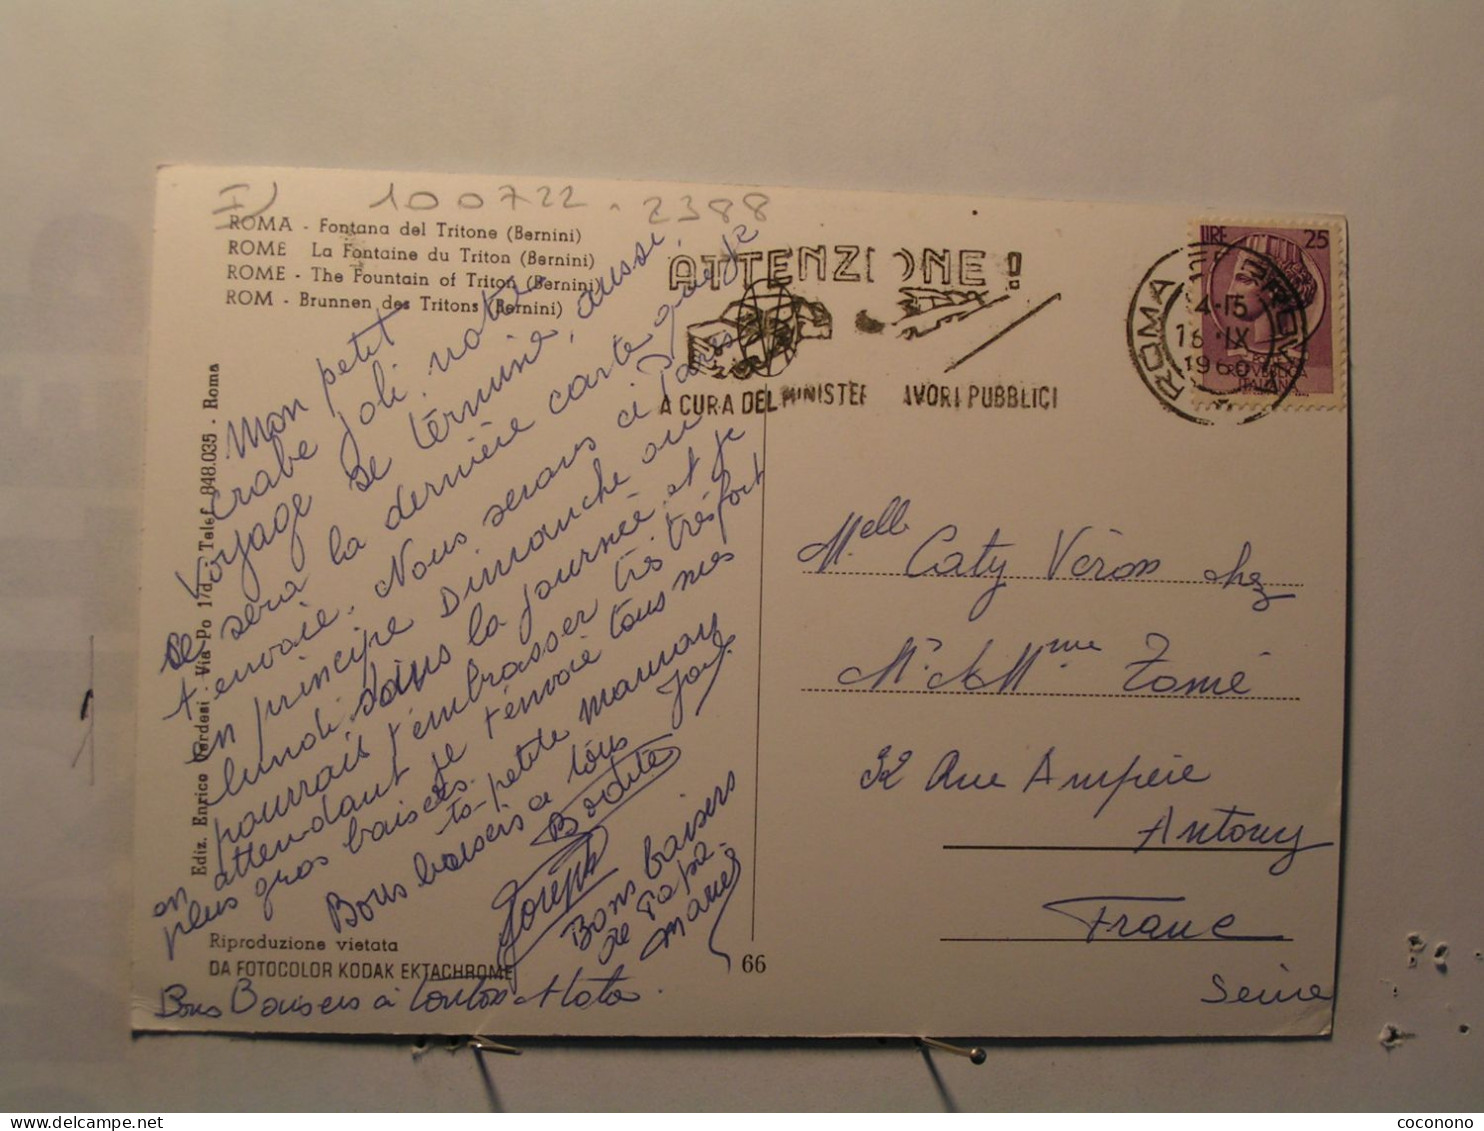 I) 100722 - 2388
ROMA - Fontana del Tritone (Bernini)
ROME La Fontaine du Triton (Bernini)
ROME - The Fountain of Triton (Bernini)
ROM - Brunnen des Tritons (Bernini)
Ediz. Enrico Verdesi - Via Po 17d - Telef. 848.035 - Roma
Mon petit
crabe joli, notre
voyage se termine, aussi
se sera la dernière carte que je
t'envoie. Nous serons ci Paris
en principe Dimanche ou
lundi dans la journée et je
pourrais t'embrasser très très fort
en attendant je t'envoie tous mes
plus gros baisers.
ta petite maman
Bons baisers a tous
Joseph
Bons baisers
de Papa
Bons Baisers à tonton
Riproduzione vietata
DA FOTOCOLOR KODAK EKTACHROME
66
ATTENZIONE!
A CURA DEL MINISTER AVORI PUBBLICI
ROMA
4-15
IX
LIRE 25
ITALIANA
Melle Caty Véron chez
Mr & Mme Tomé
32 Rue Ampère
Antony
France
Seine
coconono